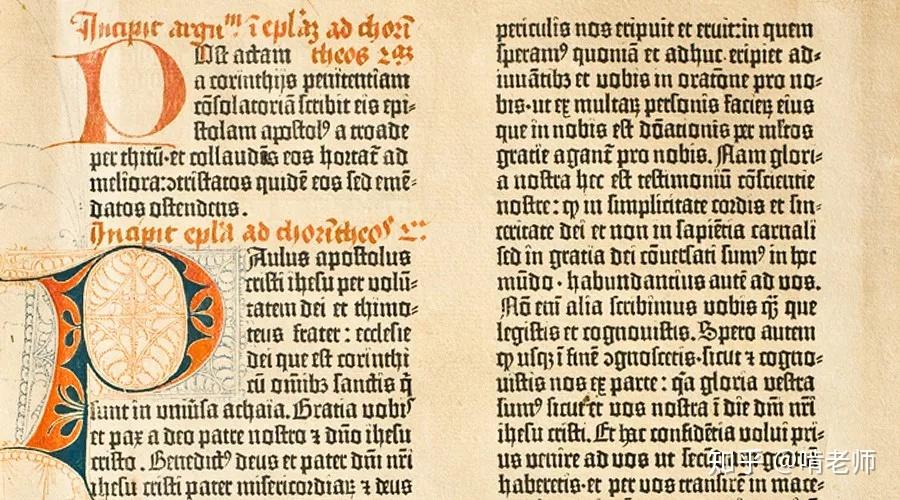 Incipit argum̄ ī eplaʒ ad chorī
theos ꝛaʒ
POst actam
a corinthijs penitentiam
cōsolatoriā scribit eis epi-
stolam apostolꝰ a troade
per thitū·et collaudās eos hortat̄ ad
meliora:ↄtristatos quidē eos sed emē-
datos ostendens.
Incipit epl̄a ad chorīntheos
PAulus apostolus
cristi ihesu per volū-
tatem dei et thimo-
teus frater: ecclesie
dei que est corinthi
cū om̄ibꝫ sanctis q̄
sunt in univ̄sa achaia. Gratia vobis
et pax a deo patre nostro ⁊ dn̄o ihesu
cristo. Benedictꝰ deus et pater dn̄i nr̄i
ihesu cristi pater misericordiaꝝ ⁊ deus
periculis nos eripuit et eruit:in quem
speramꝰ quoniā et adhuc eripiet ad-
iuvātibꝫ et vobis in oratōne pro no-
bis·ut ex multaꝝ personis facieꝝ eius
que in nobis est dōationis per m̄ltos
gratie agant̄ pro nobis. Nam glori-
a nostra hec est testimoniū cōscientie
nostre: ꝙ in simplicitate cordis et sin-
ceritate dei et non in sapiētia carnali
sed in gratia dei cōversati sumꝰ in hoc
mūdo·habundantius autē ad vos.
Nō em̄ alia scribimus vobis q̄ꝫ que
legistis et cognovistis. Spero autem
ꝙ usqꝫ ī finē ↄgnoscetis·sicut ⁊ cogno-
vistis nos ex parte: q̄a gloria vestra
sumꝰ sicut et vos nostra ī die dn̄i nr̄i
ihesu cristi. Et hac confidētia volui pri-
us venire ad vos ut secūdā gratiā
haberetis·et per vos transire in mace-
知乎 @啃老师